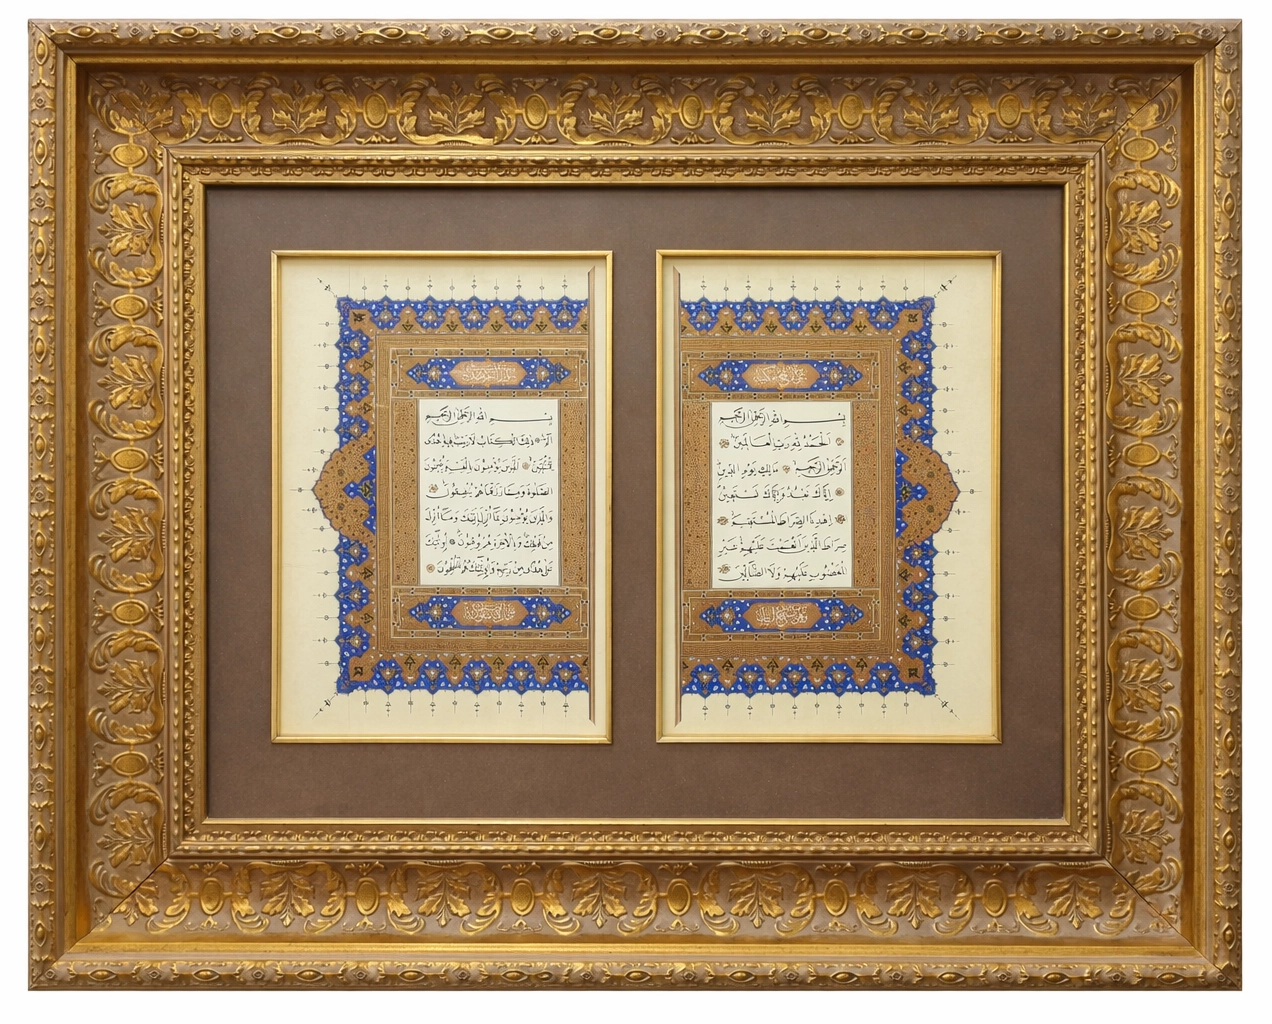 بسم الله الرحمن الرحيم
الحمد لله رب العالمين
الرحمن الرحيم مالك يوم الدين
إياك نعبد وإياك نستعين
اهدنا الصراط المستقيم
صراط الذين أنعمت عليهم غير
المغضوب عليهم ولا الضالين
بسم الله الرحمن الرحيم
الم ذلك الكتاب لا ريب فيه هدى
للمتقين الذين يؤمنون بالغيب ويقيمون
الصلوة ومما رزقناهم ينفقون
والذين يؤمنون بما أنزل إليك وما أنزل
من قبلك وبالآخرة هم يوقنون أولئك
على هدى من ربهم وأولئك هم المفلحون